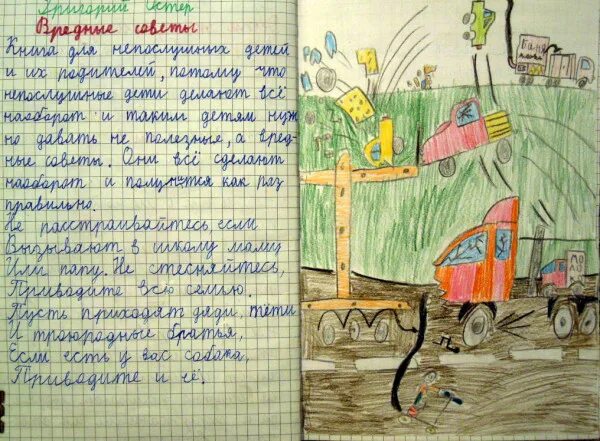 Григорий Остер
Вредные советы
Книга для непослушных детей
и их родителей, потому что
непослушные дети делают всё
наоборот и таким детям нуж
но давать не полезные, а вред-
ные советы. Они всё сделают
наоборот и получится как раз
правильно.
Не расстраивайтесь если
Вызывают в школу маму
Или папу. Не стесняйтесь,
Приводите всю семью.
Пусть приходят дяди, тёти
И троюродные братья,
Если есть у вас собака,
Приводите и её.